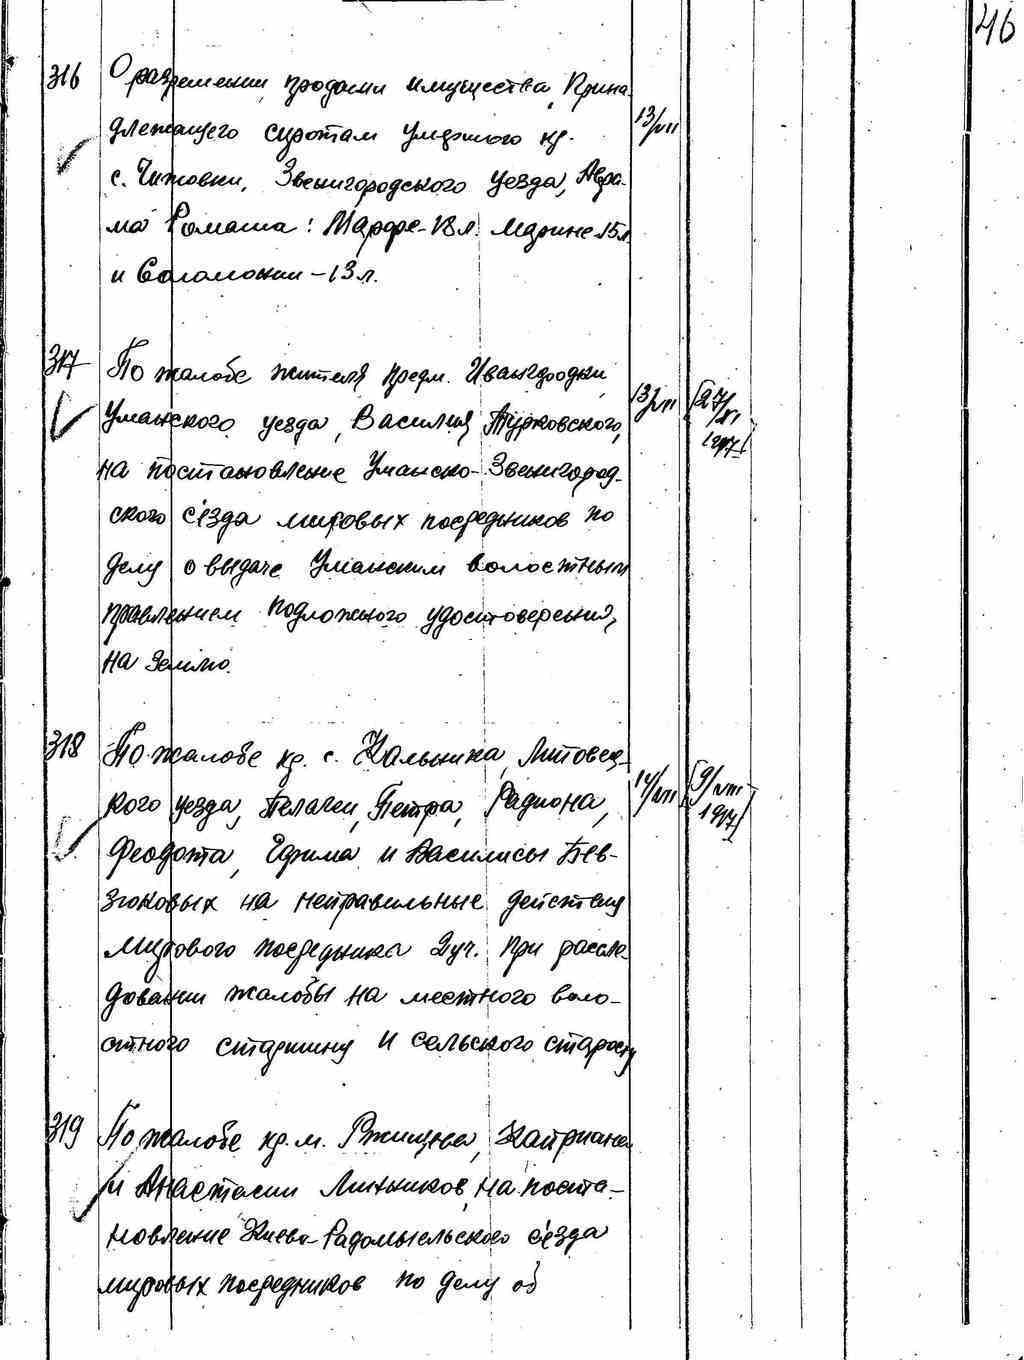 46
316 О разрешении продажи имущества, прина-
длежащего сиротам умершого кр. 13/VII
с. Чижовки, Звенигородского уезда, Авра-
ма Ромаша: Марфе-18л. Марине 15л.
и Соломонии-13л.
317 По жалобе жителя предм. Ивангородки,
Уманского уезда, Василия Турковского, 13/VII 27/XI
на постановление Уманско-Звенигород-
ского с'езда мировых посредников по
делу о выдаче Уманским волостным
правлением подложного удостоверения,
на землю.
318 По жалобе кр. с. Кальника, Липовец-
кого уезда, Пелагеи, Петра, Радиона, 14/VII 9/VIII
Феодота, Ефима и Василисы Бев-
зюковых на неправильные действия
мирового посредника 2уч. при рассле-
довании жалобы на местного воло-
стного старшину и сельского старосту
319 По жалобе кр. м. Ржищева,
и Анастасии Линников, на поста-
новление Киево-Радомысльского с'езда
мировых посредников по делу об